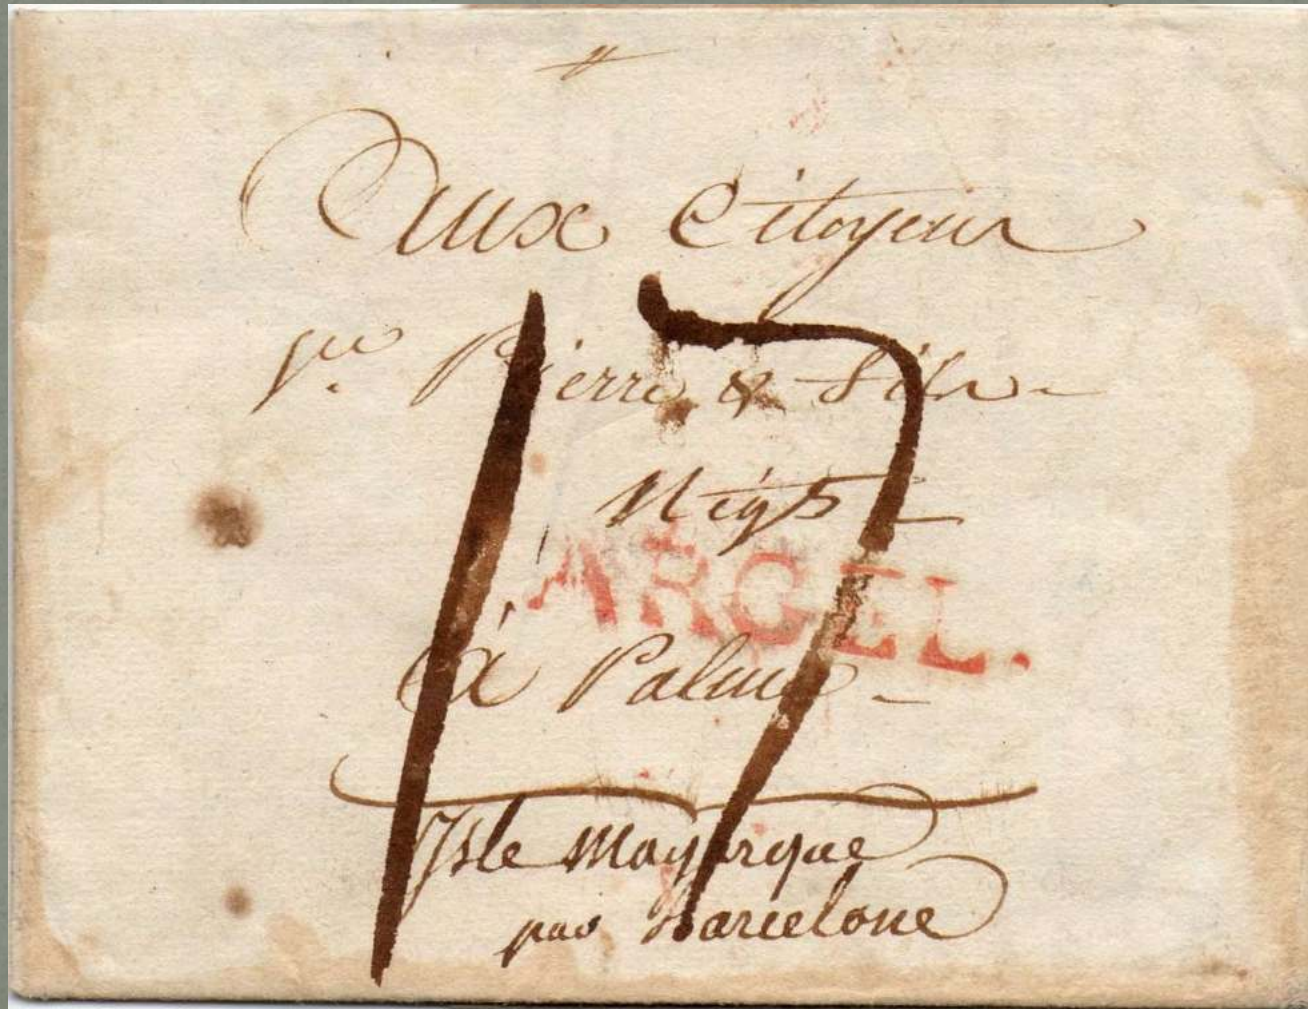 Aux Citoyens
Vve. Pierre & fils
Négts
ARGEL.
à Palme
Isle Mayorque
par Barcelone
17